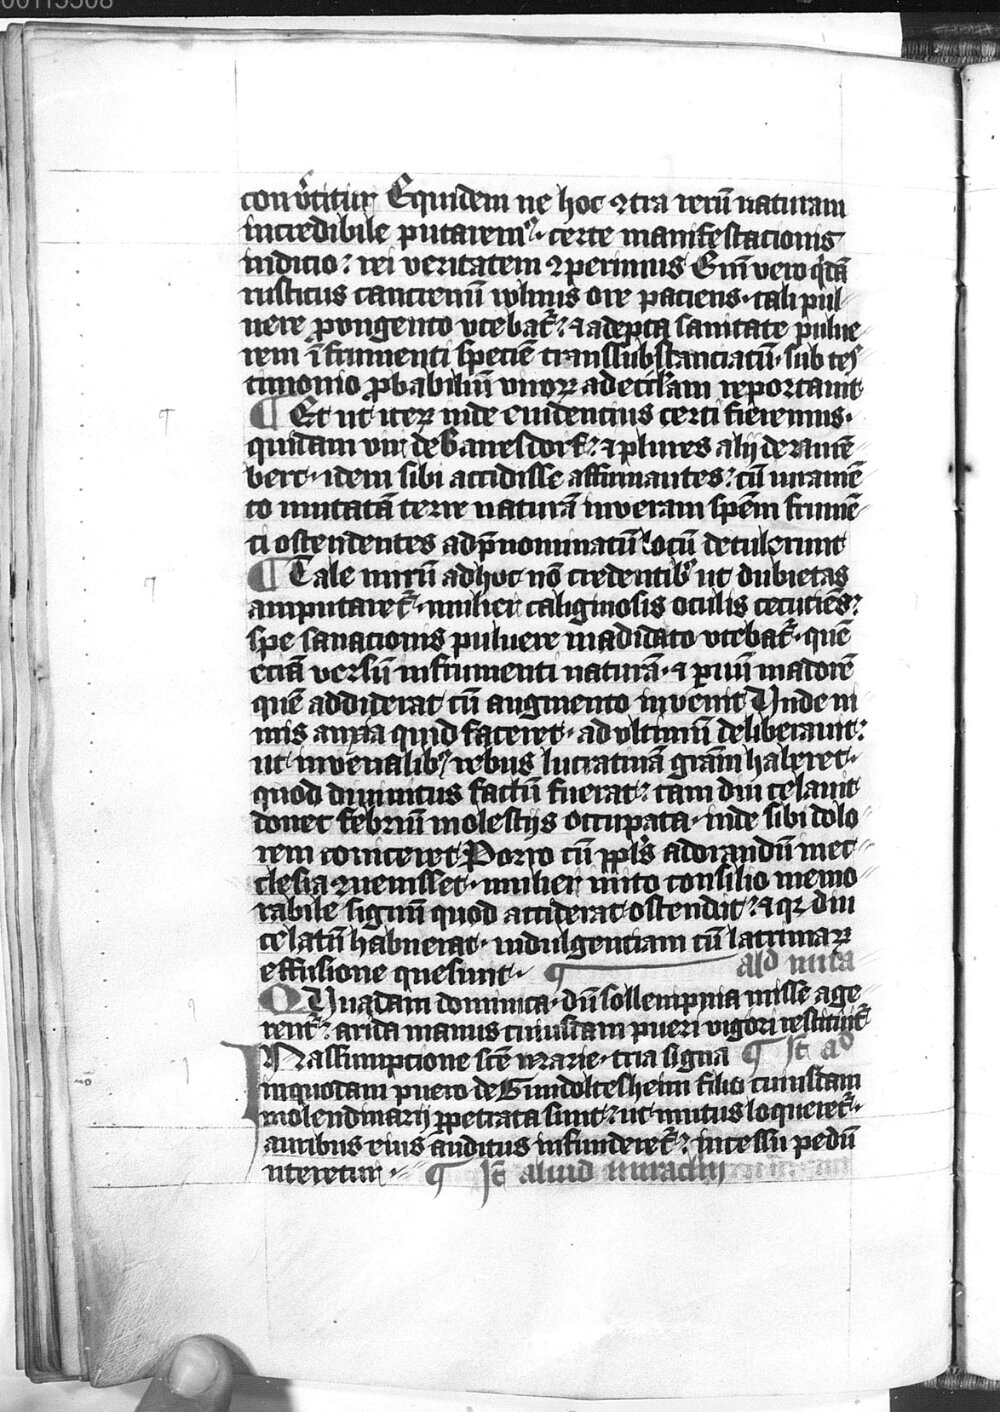 con v̾titur Equidem ne hoc ꝯtra rerū naturam
incredibile putaremꝰ· certe manifestacionis
indicio: rei veritatem ꝯperimus Enī vero q̇dā
rusticus cancrenū vulnus ore paciens· tali pul
uere pvngento vtebat᷑: ⁊ adepta sanitate pulue
rem ī frumenti speciē transsubstanciatū· sub tes
timonio ꝓbabiliū viroꝝ ad eccl̄iam reportauit
¶ Et ut iteꝝ inde euidencius certi fieremus·
quidam vir de Ganesdorf: ⁊ plures alij de
bert· idem sibi accidisse affirmantes: cū iuramē
to mutatā terre naturā in veram spēm frumē
ti ostendentes ad p̄nominatū locū detulerunt
¶ Tale mirū adhuc nō credentibꝰ ut dubietas
amputaret᷑· mulier caliginosis oculis cecuciēs:
spe sanacionis puluere madidato vtebat᷑· quē
eciā versū in frumenti naturā· ⁊ ꝑuū madorē
quē addiderat cū augmento inuenit Unde ni
mis anxia quid faceret· ad vltimū deliberauit:
ut in venalibꝰ rebus lucratiuā gr̄am haberet·
quod diuinitus factū fuerat: tam diu celauit
donec febriū molestijs occupata· inde sibi dolo
rem coniceret Porro cū ppl̄s adorandū in ec
clesia ꝯuenisset· mulier inito consilio memo
rabile signū quod acciderat ostendit: ⁊ qꝛ diu
celatū habuerat· indulgentiam cū lacrimaꝝ
effusione quesiuit· ¶ ald mira
QUadam dominica· dū sollempnia misse age
rent᷑: arida manus cuiusdam pueri vigori restituit᷑
IN assumpcione scē marie· tria signa ¶ Jt̄ ad
in quodam puero de Gundoltesheim filio cuiusdam
molendinarij ꝑpetrata sunt: ut mutus loqueret᷑·
auribus eius auditus infunderet᷑: incessu pedū
uteretur· ¶ Jt̄ aliud miraculū